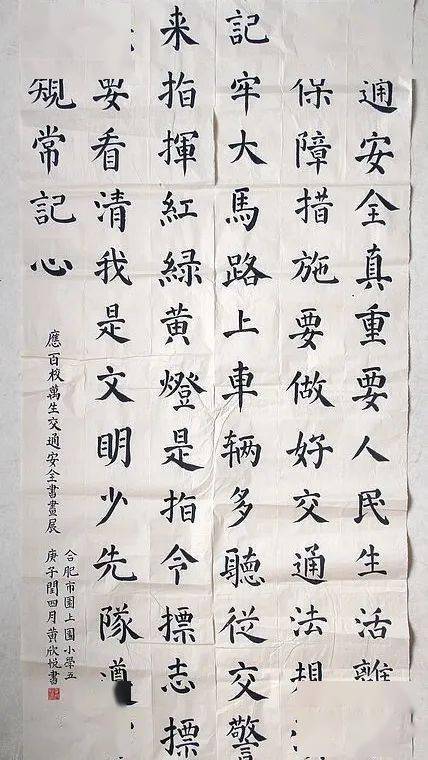 通安全真重要人民生活離
保障措施要做好交通法規
記牢大馬路上車辆多聽從交警
来指揮紅緑黄燈是指令標志標
要看清我是文明少先隊遵
規常記心
應百校萬生交通安全書畫展
合肥市園上園小學五
庚子閏四月黄欣悦書